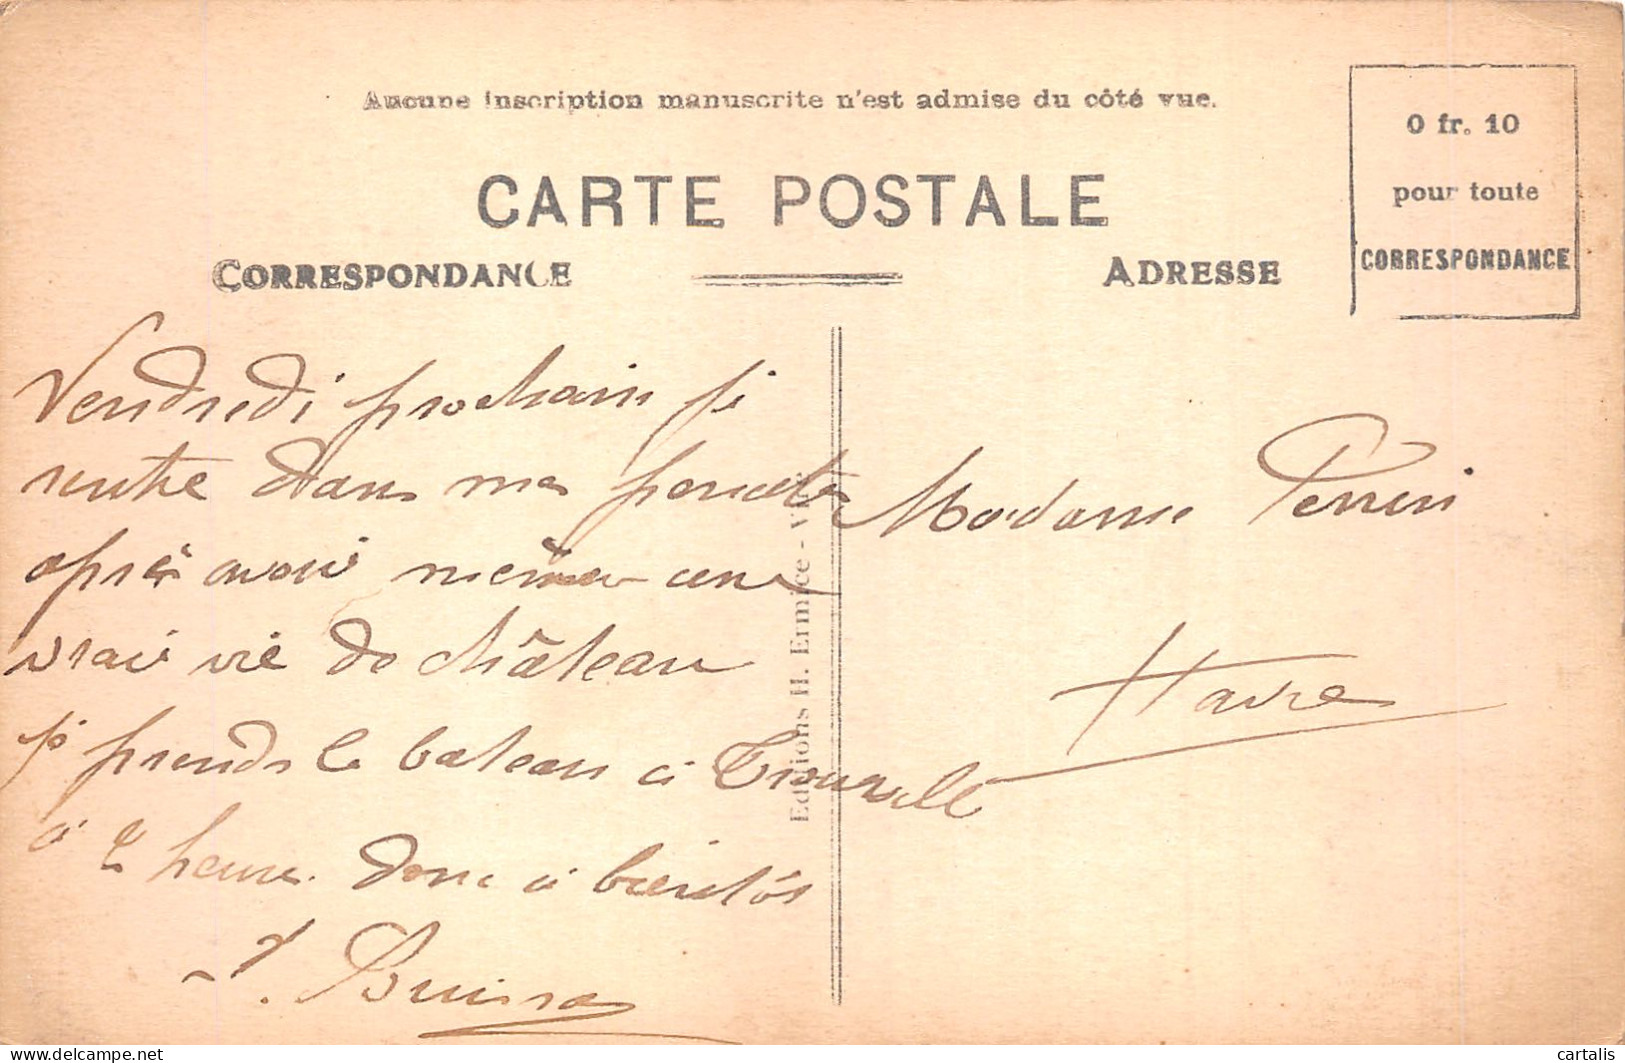 Aucune inscription manuscrite n'est admise du côté vue.
CARTE POSTALE
CORRESPONDANCE
ADRESSE
0 fr. 10
pour toute
CORRESPONDANCE
Vendredi prochain je
rentre dans mes
après avoir une
vraie vie de château
je prends le bateau à Trouville
à 2 heures donc à bientôt
Madame Perrin
Havre
Editions H. Ermice - Vire
cartalis
delcampe.net